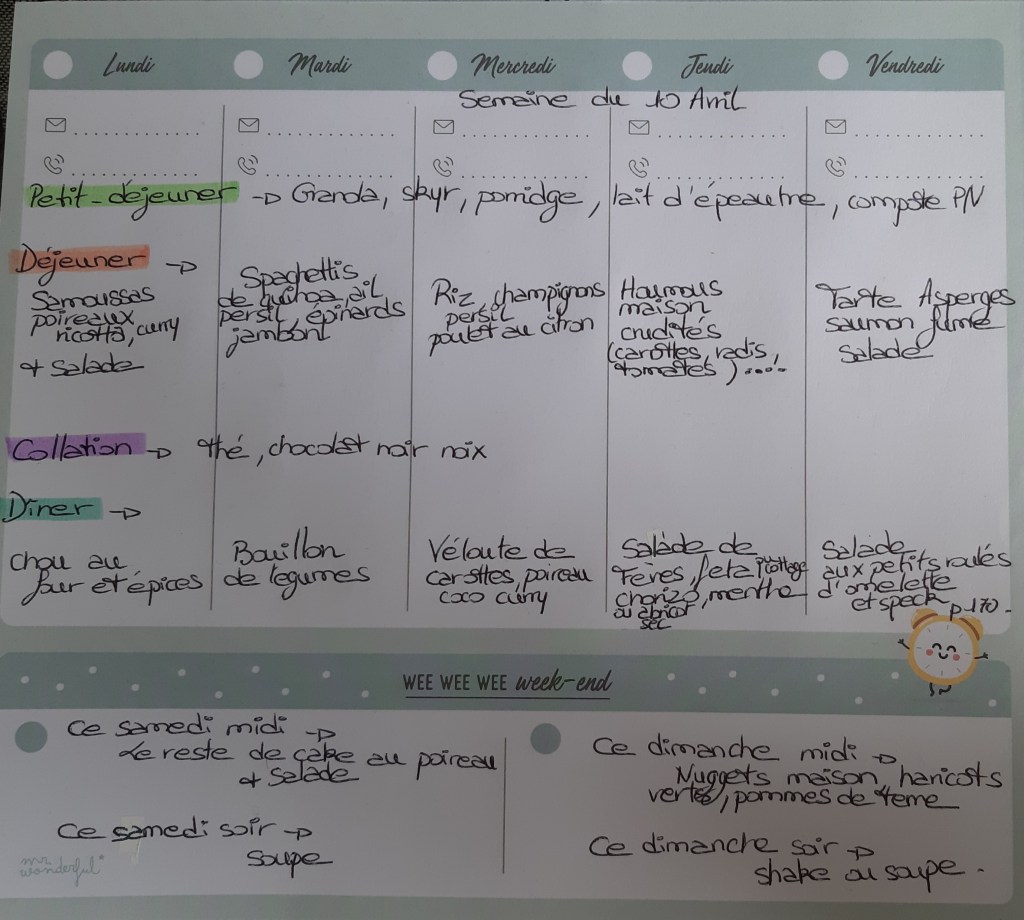 Lundi Mardi Mercredi Jeudi Vendredi
Semaine du 10 Avril
Petit-déjeuner → Granola, skyr, porridge, lait d'épeautre, compote PN
Déjeuner →
Samoussas
poireaux
ricotta, curry
+ salade
Spaghettis
de quinoa, ail
persil, épinards
jambon
Riz, champignons
persil
poulet au citron
Houmous
maison
crudités
(carottes, radis,
tomates).....
Tarte Asperges
saumon fumé
salade
Collation → thé, chocolat noir noix
Dîner →
chou au
four et épices
Bouillon
de legumes
Véloute de
carottes, poireau
coco curry
Salade de
Fèves, feta
chorizo, menthe
ou abricot
sec
Salade
aux petits roulés
d'omelette
et speck
p 170.
WEE WEE WEE week-end
Ce samedi midi →
Le reste de cake au poireau
+ salade
Ce samedi soir →
soupe
Ce dimanche midi →
Nuggets maison, haricots
verts, pommes de terre
Ce dimanche soir →
shake ou soupe.
mr
wonderful*